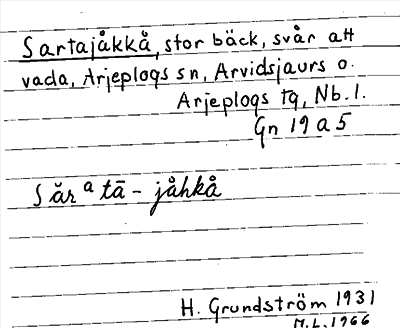 Sartajåkkå, stor bäck, svår att
vada, Arjeplogs sn, Arvidsjaurs o.
Arjeplogs tg, Nb. l.
Gn 19 a 5
Sărᵃtā - jåhkå
H. Grundström 1931
M.L. 1966